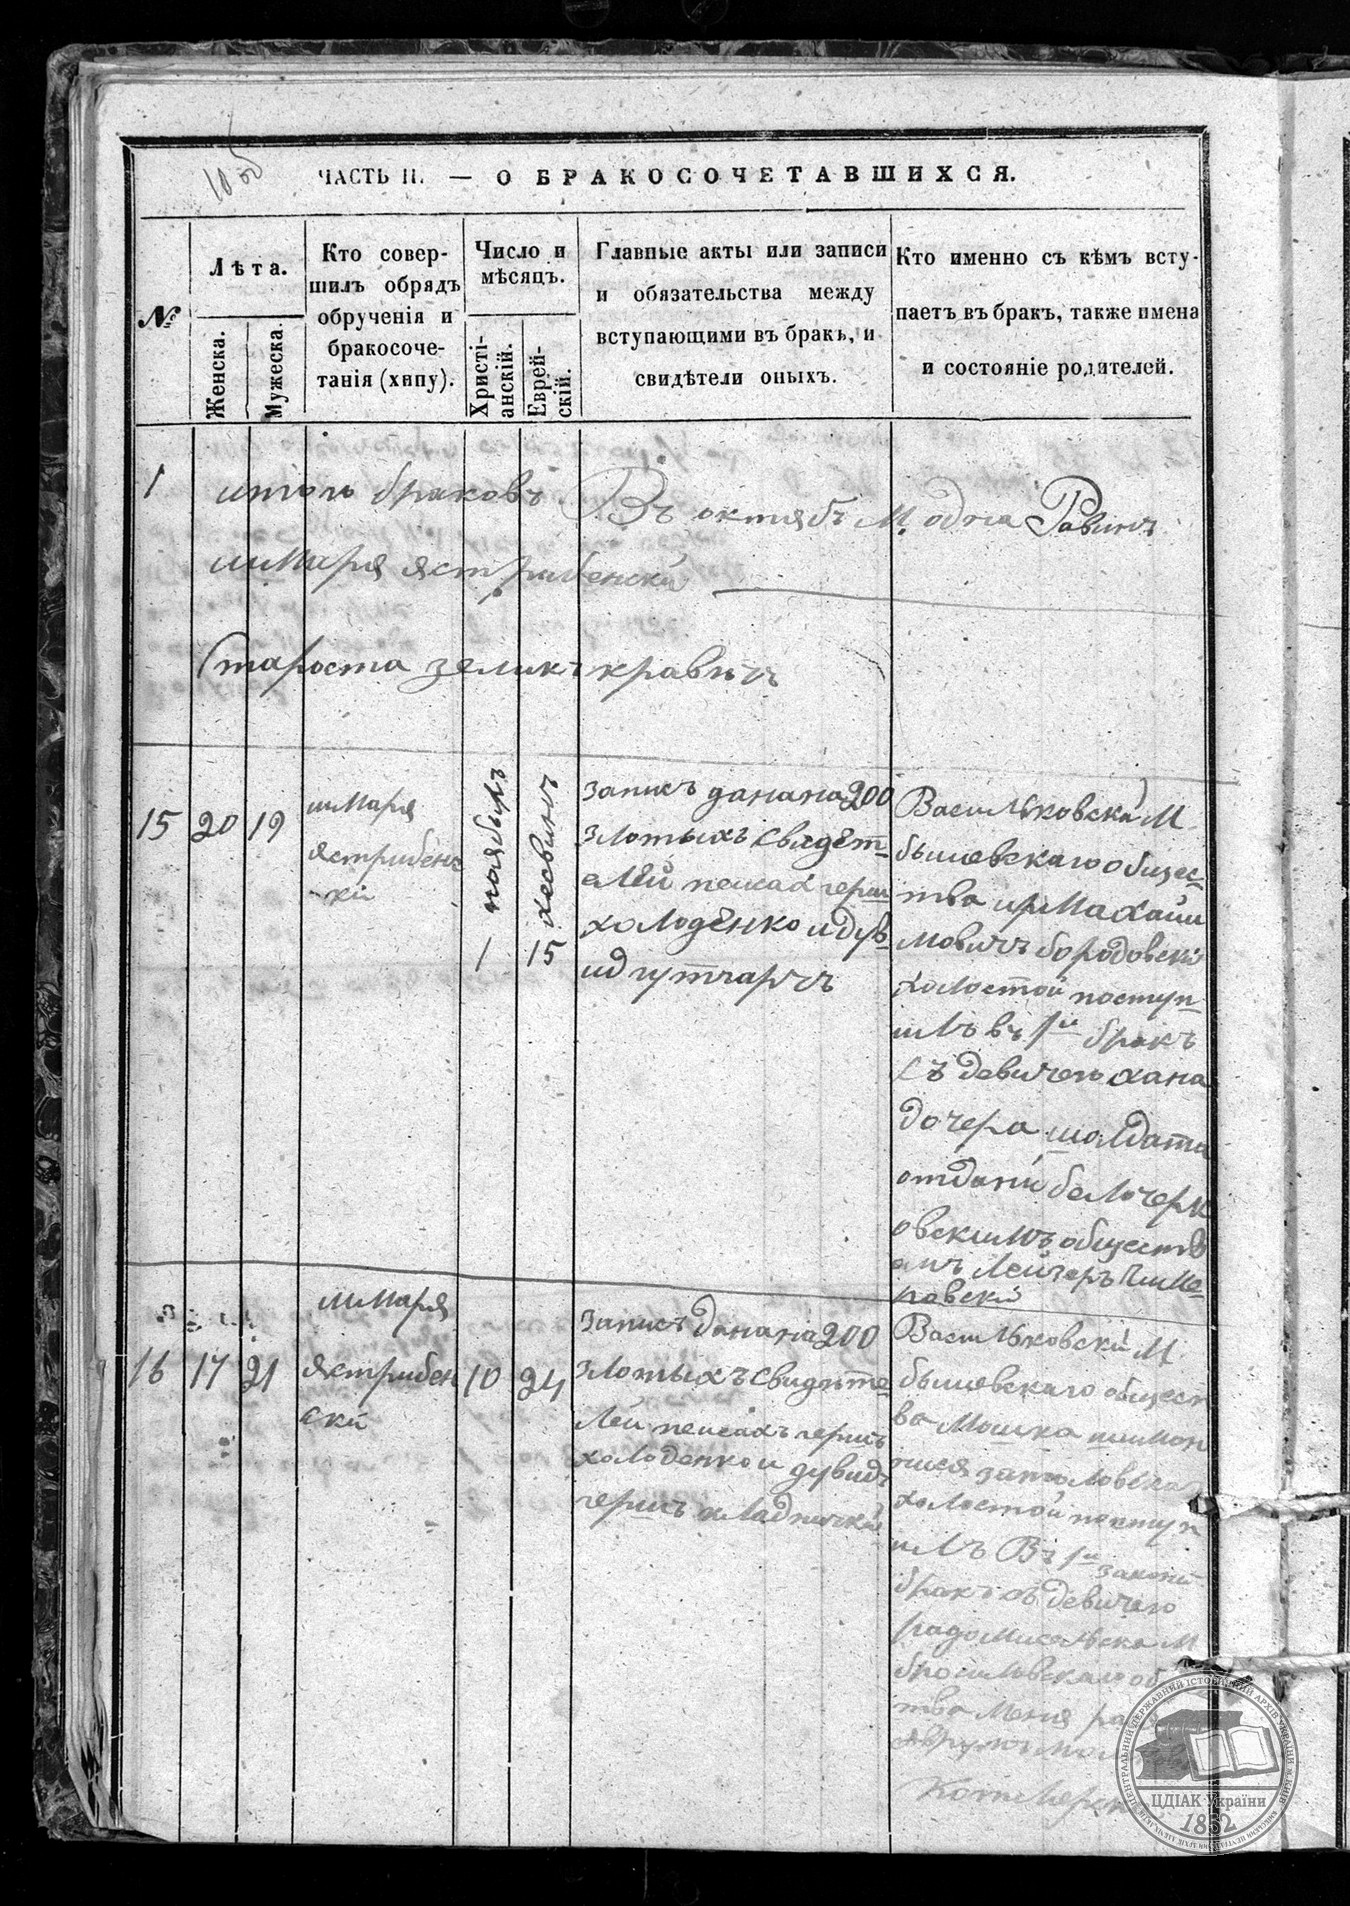 ЧАСТЬ II. — О БРАКОСОЧЕТАВШИХСЯ.
№
Лѣта.
Женска.
Мужеска.
Кто совер-
шилъ обрядъ
обрученія и
бракосоче-
танія (хупу).
Число и
мѣсяцъ.
Христі-
анскій.
Еврей-
скій.
Главные акты или записи
и обязательства между
вступающими въ бракъ, и
свидѣтели оныхъ.
Кто именно съ кѣмъ всту-
паетъ въ бракъ, также имена
и состояніе родителей.
1 итого браковъ Въ октябѣ М. одна Равинъ
шмаря ястрибенски
Староста зеликъ кравецъ
15 20 19
шмаря
ястрибенъ
ски
ноябыръ
1
хесвинъ
15
запись дана на 200
злотыхъ свядѣт-
елей пейсах герш
холоденко и дув-
ид гутгарцъ
Васильковски М
бышевскаго общес-
тва
мовичъ бородовски
холостой поступ-
илъ въ 1й бракъ
съ девицею хана
дочера шолдата
отдани белочерк
овскимъ обществ
омъ
16 17 21
шмаря
ястрибен
ски
10
24
запись дана на 200
злотыхъ свидѣте-
лей пейсахъ гершъ
холоденко и дувидъ
гершъ
Васильковски М
бышевскаго общест
ва Мошка шимон
холостой поступ
илъ Въ 1й закони
бракъ съ девицею
радомисельска М
брошловскаго об
тва
ЦЕНТРАЛЬНИЙ ДЕРЖАВНИЙ ІСТОРИЧНИЙ АРХІВ УКРАЇНИ М. КИЇВ
ЦДІАК України
1852